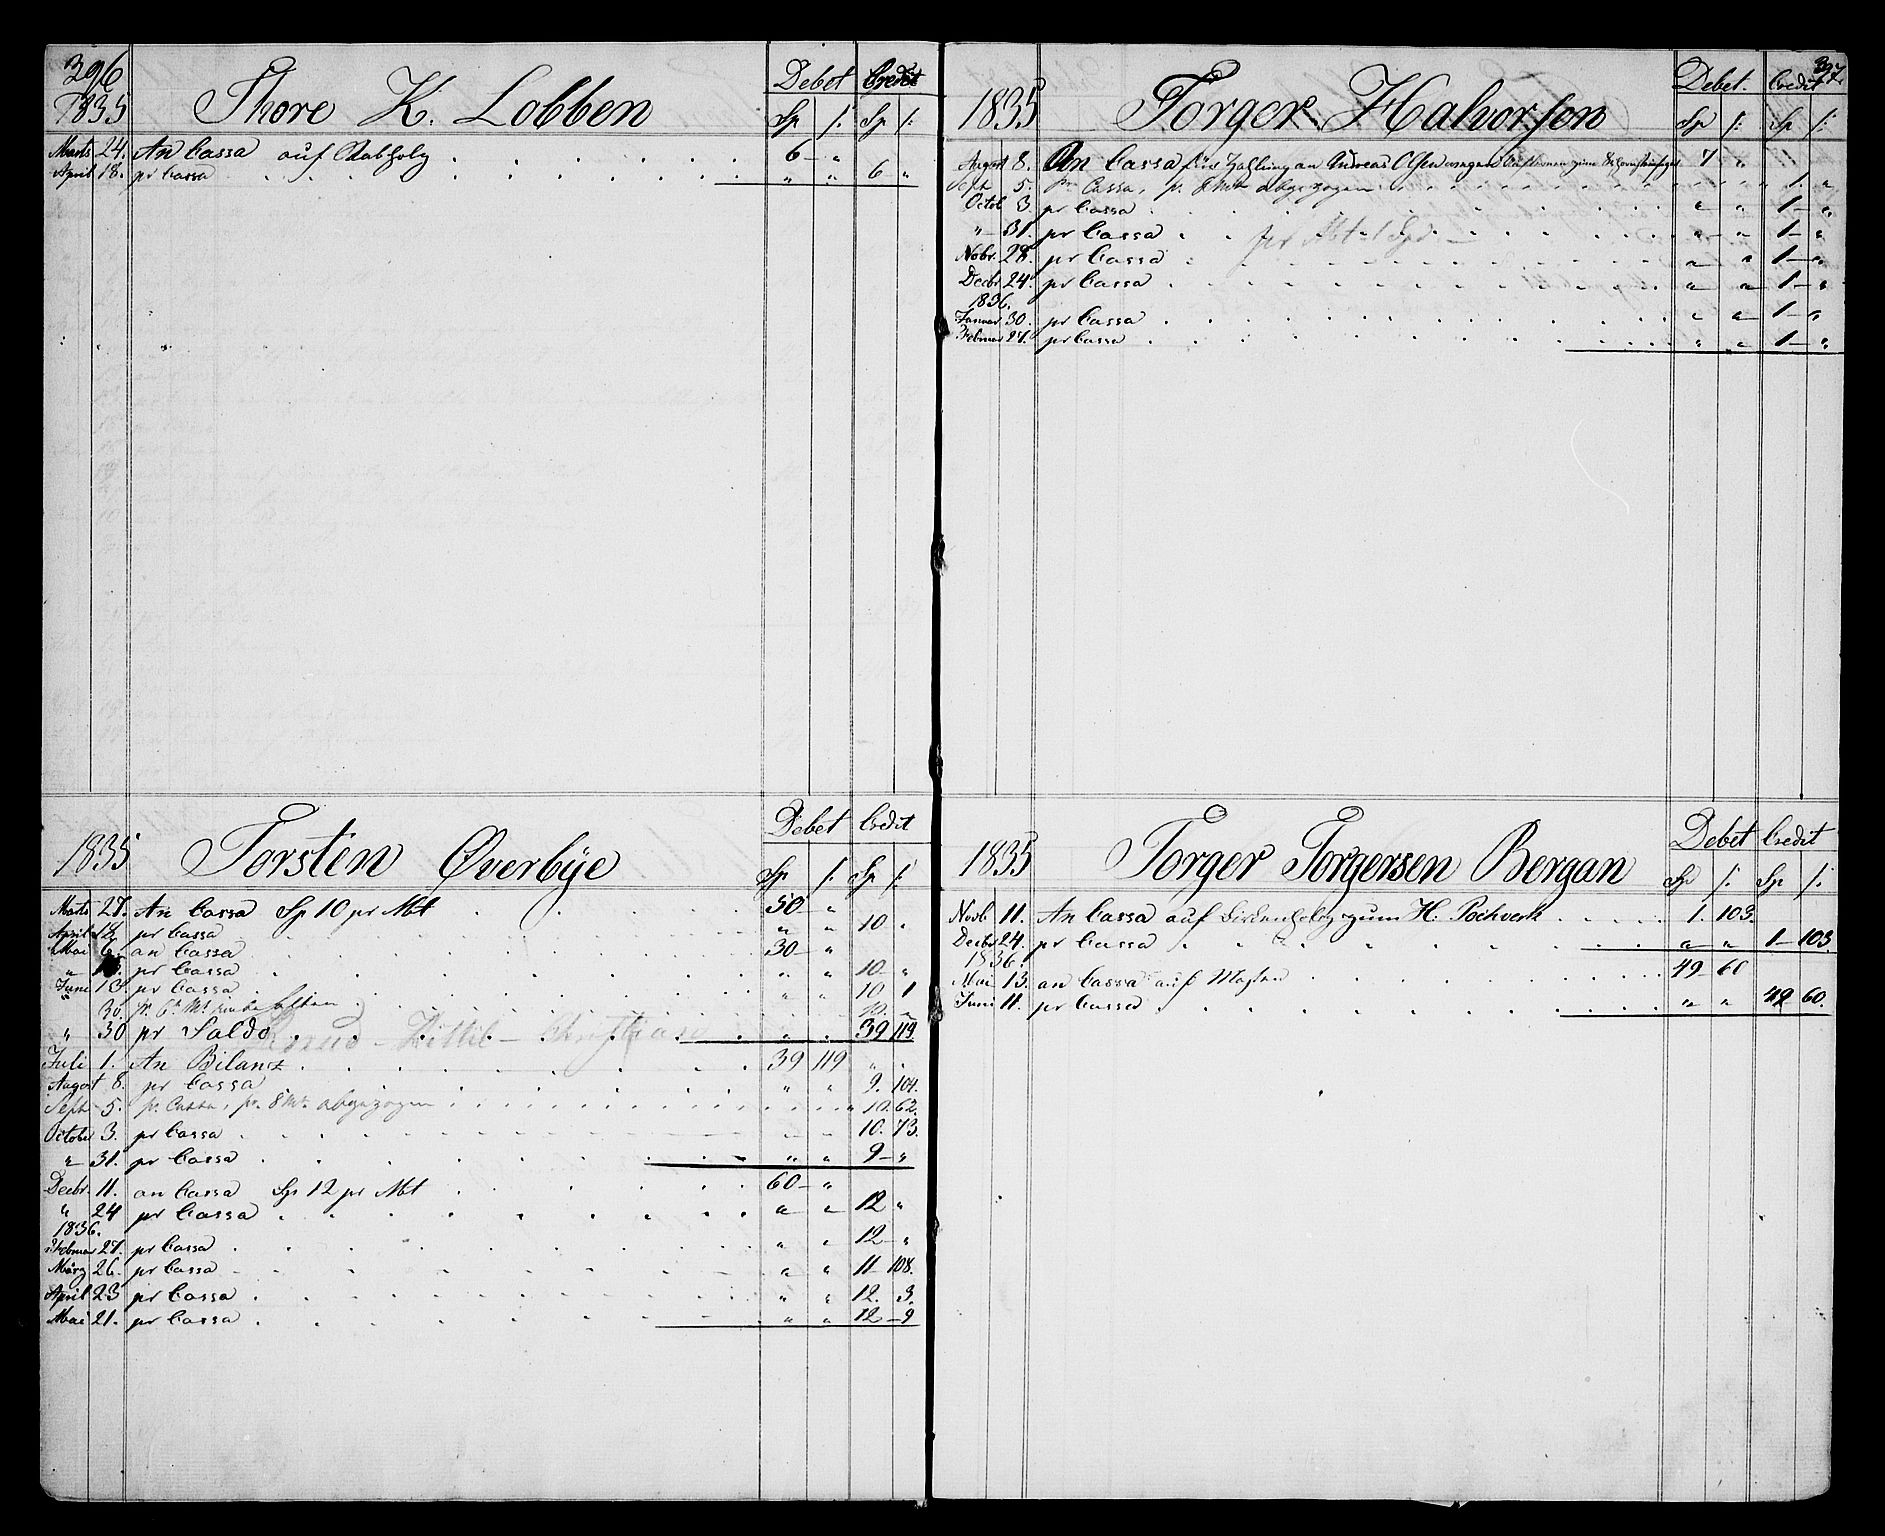 296
1835 Thore K. Lobben Debet Credit
Sp /: Sp /:
Marts 24. An Cassa auf Stabholz 6 — "
April 18. pr Cassa " " 6 "
1835 Torsten Øverbÿe Debet Credit
Sp /: Sp /:
Marts 27. An Cassa Sp 10 pr Mbt 50 — "
April 18. pr Cassa " " 10 "
Mai 6. an Cassa 30 — "
" pr Cassa " " 10 — "
Juni 13. pr Cassa " " 10 1
30. pr 6te Mt 10. "
" 30 pr Saldo " " 39 119.
Juli 1. An Bilanz 39 119 " .
August 8. pr Cassa " " 9. 104.
Sept. 5. pr. Cassa, pr. 8 Mt. abgezogen " 10. 62.
Octobr 3. pr Cassa " " 10. 73.
" 31. pr Cassa " " 9 — "
Decbr. 11. an Cassa Sp 12 pr Mbt 60 — "
" 24 pr Cassa " " 12 "
1836.
Februar 27. pr Cassa " " 12 — "
März 26. pr Cassa " " 11 — 108.
April 23 pr Cassa " " 12. 3.
Mai 21. pr Cassa " " 12 — 9
397
1835 Torger Halvorsen Debet. Credit
Sp /: Sp /:
August 8. An Cassa für Zahlung an Andreas Olsen wegen 7 "
Sept. 5. pr Cassa, pr. 8 Mt abgezogen " " 1. "
Octob 3. pr Cassa " " 1 — "
" 31. pr Cassa pr Mbt 1 Spd. " — " 1 — "
Nobr. 28. pr Cassa " " 1 — "
Decbr 24. pr Cassa " " 1 — "
1836.
Januar 30. pr Cassa " " 1 — "
Februar 27. pr Cassa " " 1 — "
1835 Torger Torgersen Bergan Debet Credit
Sp /: Sp /:
Novb. 11. An Cassa auf zum H. Pochwerk 1. 103.
Decbr 24. pr Cassa " " 1 — 103.
1836.
Mai 13. an Cassa auf Masten 49 — 60
Juni 11. pr Cassa " " 49 60.